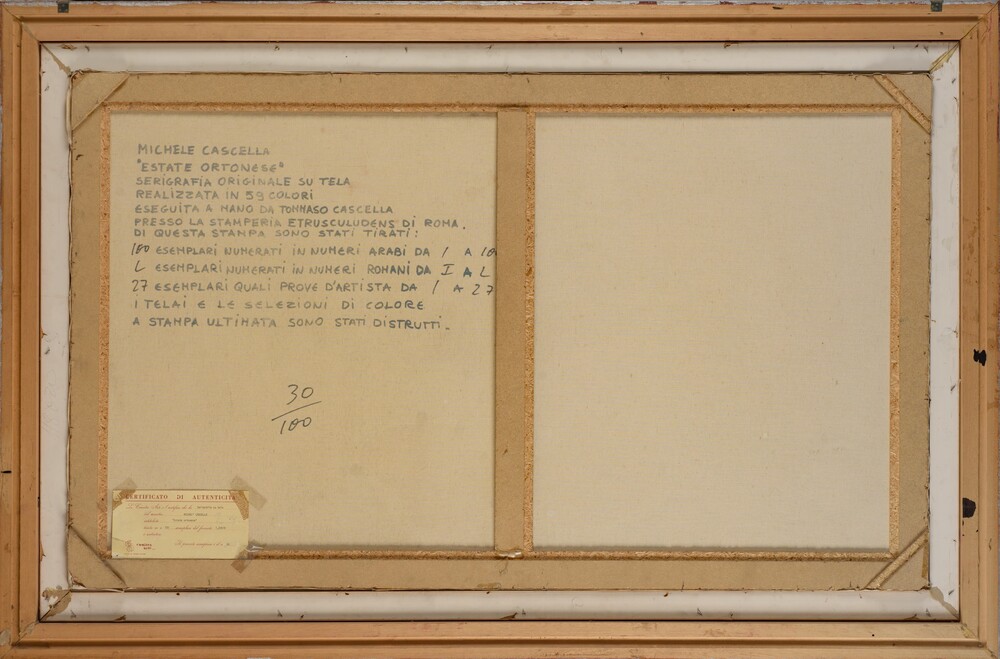 MICHELE CASCELLA
"ESTATE ORTONESE"
SERIGRAFIA ORIGINALE SU TELA
REALIZZATA IN 59 COLORI
ESEGUITA A MANO DA TOMMASO CASCELLA
PRESSO LA STAMPERIA ETRUSCULUDENS DI ROMA.
DI QUESTA STAMPA SONO STATI TIRATI:
100 ESEMPLARI NUMERATI IN NUMERI ARABI DA 1 A 100
L ESEMPLARI NUMERATI IN NUMERI ROMANI DA I A L
27 ESEMPLARI QUALI PROVE D'ARTISTA DA 1 A 27
I TELAI E LE SELEZIONI DI COLORE
A STAMPA ULTIMATA SONO STATI DISTRUTTI.
30
100
CERTIFICATO DI AUTENTICITÀ